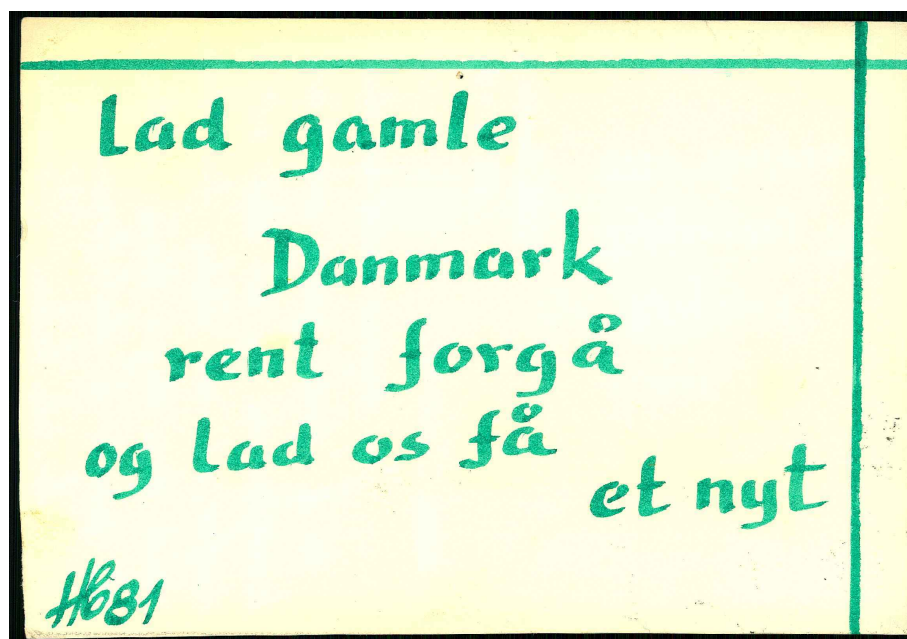 lad gamle
Danmark
rent forgå
og lad os få
et nyt
HC81